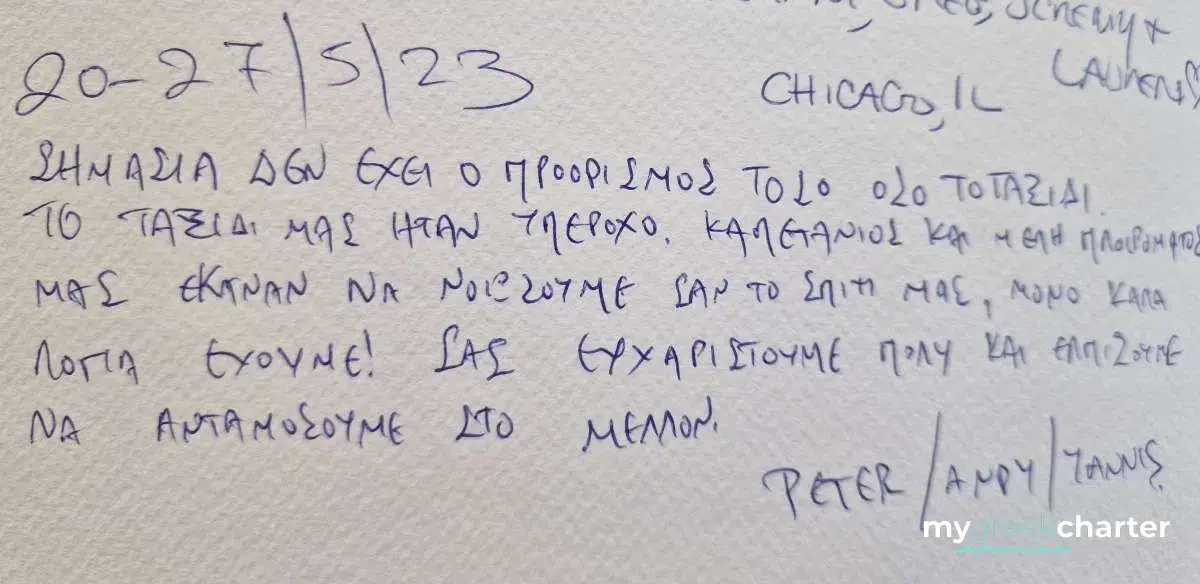 JEREMY &
LAUREN
CHICAGO, IL
20-27/5/23
ΣΗΜΑΣΙΑ ΔΕΝ ΕΧΕΙ Ο ΠΡΟΟΡΙΣΜΟΣ ΤΟΣΟ ΟΣΟ ΤΟ ΤΑΞΙΔΙ.
ΤΟ ΤΑΞΙΔΙ ΜΑΣ ΗΤΑΝ ΥΠΕΡΟΧΟ. ΚΑΠΕΤΑΝΙΟΣ ΚΑΙ ΜΕΛΗ ΠΛΟΙΡΟΜΑΤΟΣ
ΜΑΣ ΕΚΑΝΑΝ ΝΑ ΝΟΙΣΟΥΜΕ ΣΑΝ ΤΟ ΣΠΙΤΙ ΜΑΣ, ΜΟΝΟ ΚΑΛΑ
ΛΟΓΙΑ ΕΧΟΥΜΕ! ΣΑΣ ΕΥΧΑΡΙΣΤΟΥΜΕ ΠΟΛΥ ΚΑΙ ΕΛΠΙΖΟΥΜΕ
ΝΑ ΑΝΤΑΜΟΣΟΥΜΕ ΣΤΟ ΜΕΛΛΟΝ.
PETER/ANDY/YANNIS.
mygreekcharter